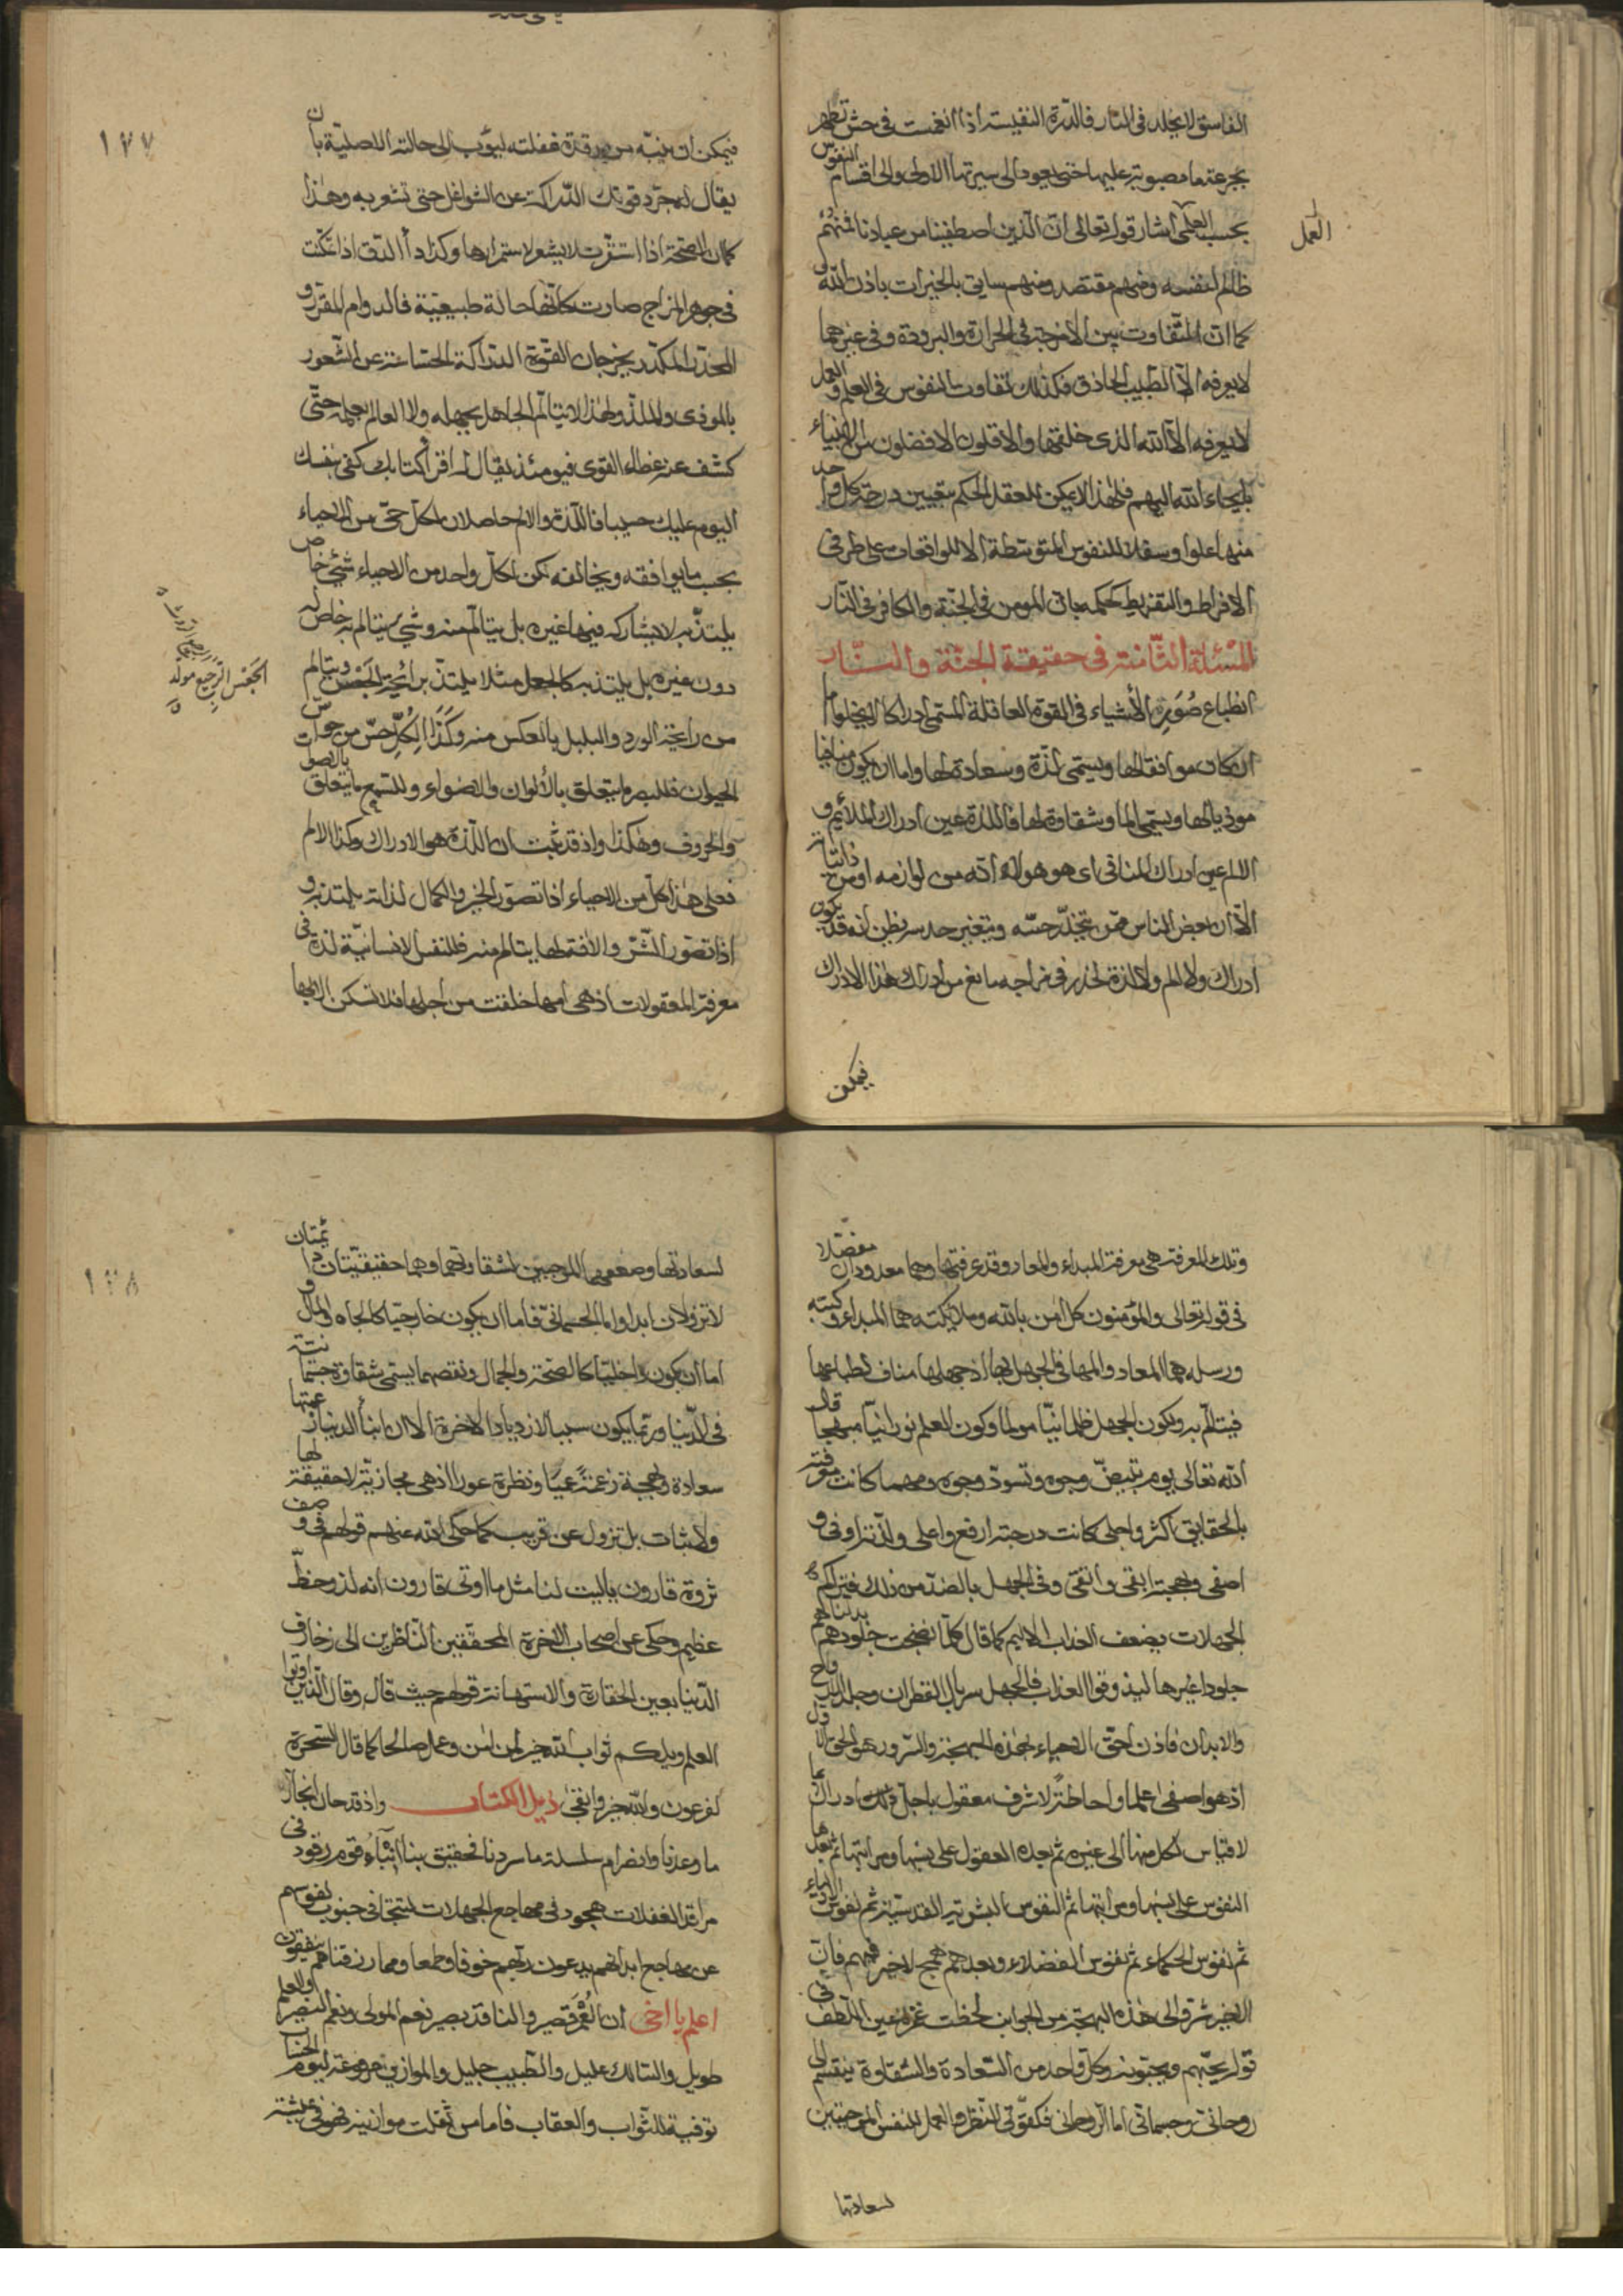 الفاسق لا يخلد فى النار فالدرة النفيسة اذا انغمست فى حش تطهر
بجرعة ماء مصبوبة عليها حتى يعود الى سيرتها الاولى والى اقسام النفوس
بحسب العلمى اشار قوله تعالى ان الذين اصطفينا من عبادنا فمنهم
العمل
ظالم لنفسه ومنهم مقتصد ومنهم سابق بالخيرات باذن الله و
كما ان التفاوت بين الامزجة فى الحرارة والبرودة وفى غيرهما
لا يعرفه الا الطبيب الحاذق فكذلك تفاوت النفوس فى العلم والعمل
لا يعرفه الا الله الذى خلقها والاقلون الافضلون من الانبياء
بايحاء الله اليهم فلهذا لا يمكن للعقل الحكم بتعيين درجة كل واحد
منها علوا وسفلا للنفوس المتوسطة الا للواقعات على طرفى
الافراط والتفريط كحكمه بان المومن فى الجنة والكافر فى النار
المسئلة الثامنة فى حقيقة الجنة والنار
انطباع صور الأشياء فى القوة العاقلة المسمى ادراكا لا يخلو اما
ان كان موافقا لها ويسمى لذة وسعادة لها واما ان يكون منافيا
موذيا لها ويسمى الما وشقاوة لها فاللذة عين ادراك الملائم و
الالم عين ادراك المنافى اى هو هو لا انه من لوازمه او من ذاتياته
الا ان بعض الناس ممن يتخدر حسه ويتغير حدسه يظن انه قد يكون
ادراك ولا الم ولا لذة لخدر فى مزاجه مانع من ادراك هذا الادراك
فيمكن
١٢٧
فيمكن ان ينبه من رقدة غفلته ليؤب الى حالته الاصلية بان
يقال له جرد قوتك الدراكة عن الشواغل حتى تشعر به وهذا
كما ان الصحة اذا استقرت لا يشعر لاستمرارها وكذا داء الدق اذا تمكنت
فى جوهر المزاج صارت كانها حالة طبيعية فالدوام المقرر و
المخدر المكدر يخرجان القوة الدراكة الحساسة عن الشعور
بالموذى والملذ ولهذا لا يتألم الجاهل بجهله ولا العالم بعلمه حتى
كشف عنه غطاء القوى فيومئذ يقال له اقرأ كتابك كفى بنفسك
اليوم عليك حسيبا فاللذة والالم حاصلان لكل حى من الاحياء
بحسب ما يوافقه ويخالفه لكن لكل واحد من الاحياء شئ خاص
يلتذ به لا يشاركه فيها غيره بل يتالم منه وشئ يتالم به خاص له
دون غيره بل يلتذ به كالجعل مثلا يلتذ برائحة الجعس ويتالم
الجعس الرجيع مولد
من رايحة الورد والبلبل بالعكس منه وكذا لكل حس من حواس
الحيوان فللبصر ما يتعلق بالألوان والاضواء وللسمع ما يتعلق بالصوات
والحروف وهكذا واذ قد ثبت ان اللذة هو الادراك وكذا الالم
فعلى هذا كل من الاحياء اذا تصور الخير والكمال لذاته يلتذ به و
اذا تصور الشر والافة لها يتالم منه فللنفس الانسانية لذة فى
معرفة المعقولات اذ هى امها خلقت من اجلها فلا تسكن الا بها
وتلك المعرفة هى معرفة المبداء والمعاد وقد عرفتهما وهما معدودان مفصلا
فى قوله تعالى والمؤمنون كل امن بالله وملائكته هما المبداء وكتبه
ورسله هما المعاد والمها فى الجهل بها اذ جهلها مناف لطباعها
فيتالم به ولكون الجهل ظلمانيا مولما وكون العلم نورانيا مبهجا قال
الله تعالى يوم تبيض وجوه وتسود وجوه ومهما كانت معرفته
بالحقايق اكثر واجلى كانت درجته ارفع واعلى ولذته اوفى و
اصفى وبهجته ابقى وانقى وفى الجهل بالضد من ذلك فتراكم
الجهلات يضعف العذاب الاليم كما قال كلما نضجت جلودهم بدلناهم
جلودا غيرها ليذوقوا العذاب فالجهل سربال القطران وجلد الارواح
والابدان فاذن احق الاحياء بهذه البهجة والسرور هو الحى الاول
اذ هو اصفى علما واحاطة لاشرف معقول باجل ادراك بما
لا قياس لكل منها الى غيره ثم بعده العقول على نسبها ومراتبها ثم بعدها
النفوس على نسبها ومراتبها ثم النفوس البشرية القدسية ثم نفوس الاولياء
ثم نفوس الحكماء ثم نفوس الفضلاء وبعدهم همج لا خير فيهم فان
قوله يحبهم ويحبونه وكل واحد من السعادة والشقاوة ينقسم الى
روحانى وجسمانى اما الروحانى فكقوتى النظر والعمل للنفس الموجبتين
لسعادتها
١٢٨
لسعادتها وضعفهما الموجبين لشقاوتهما وهما حقيقيتان دائمتان
لا تزولان ابدا واما الجسمانى فاما ان يكون خارجيا كالجاه والمال و
اما ان يكون داخليا كالصحة والجمال ونقصهما يسمى شقاوة جسمانية
فى الدنيا وربما يكون سببا لازدياد الاخرة الا ان ابناء الدنيا زعمتها
سعادة وبهجة زعمة عميا ونظرة عورا اذ هى مجازية لا حقيقة لها
ولا ثبات بل تزول عن قريب كما حكى الله عنهم قولهم فى وصف
ثروة قارون ياليت لنا مثل ما اوتى قارون انه لذو حظ
عظيم وحكى عن اصحاب الاخرة المحققين الناظرين الى زخارف
الدنيا بعين الحقارة والاستهانة قولهم حيث قال وقال الذين اوتوا
العلم ويلكم ثواب الله خير لمن امن وعمل صالحا كما قال السحرة
لفرعون والله خير وابقى ذيل الكتاب واذ قد حان انجاز
ما وعدنا وانصرام سلسلة ما سردنا فحقيق بنا انباء قوم رقود فى
مراقد الغفلات هجود فى مهاجع الجهلات لتتجافى جنوب نفوسهم
عن مهاجع ابدانهم يدعون ربهم خوفا وطمعا ومما رزقناهم ينفقون
اعلم يا اخى ان العمر قصير والناقد بصير نعم المولى ونعم النصير والعلم
طويل والسالك عليل والطبيب جليل والموازين موضوعة ليوم الحساب
توفية للثواب والعقاب فاما من ثقلت موازينه فهو فى عيشة